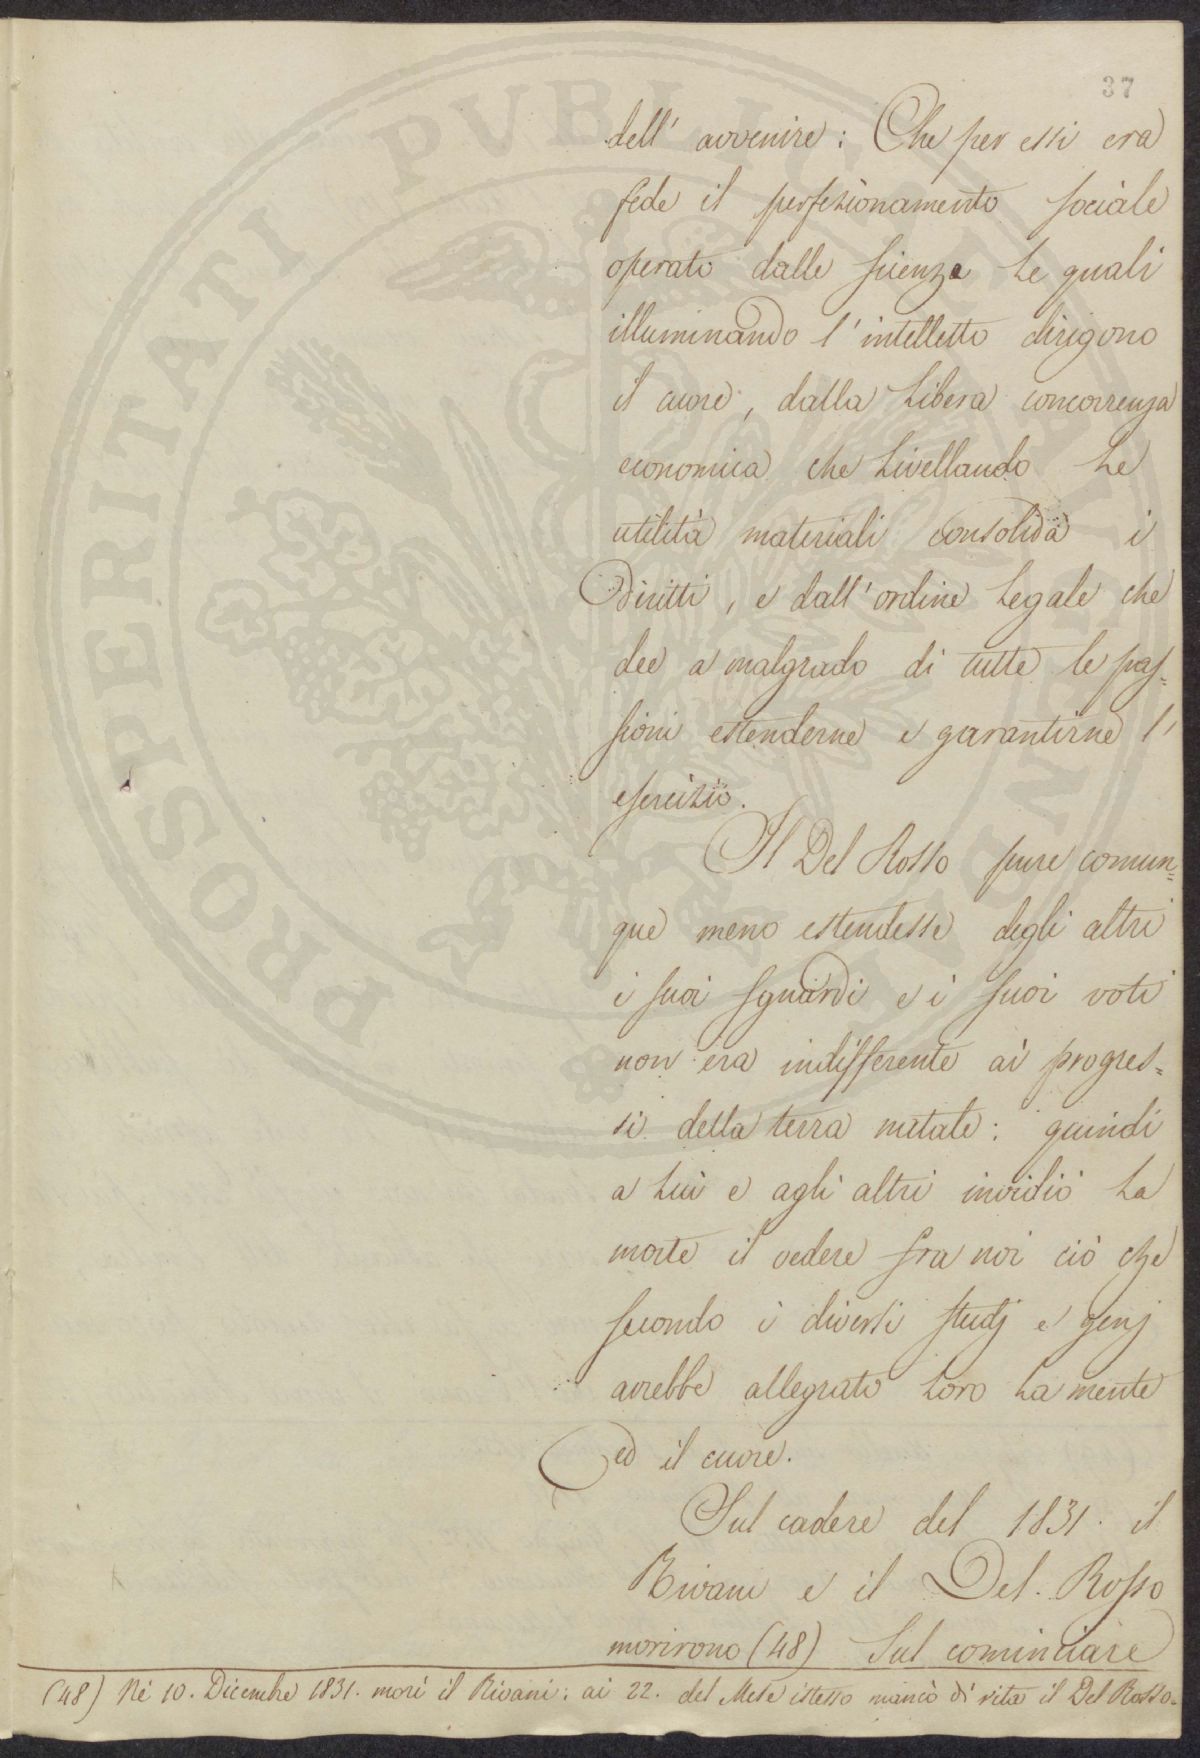 37
dell' avvenire: Che per essi era
fede il perfezionamento sociale
operato dalle scienze le quali
illuminando l'intelletto dirigono
il cuore, dalla libera concorrenza
economica che livellando le
utilità materiali consolida i
diritti, e dall'ordine legale che
dee a malgrado di tutte le pas=
sioni estenderne e garantirne l'
esercizio.
Il Del Rosso pure comun=
que meno estendesse degli altri
i suoi sguardi e i suoi voti
non era indifferente ai progres=
si della terra natale: quindi
a lui e agli altri invidiò la
morte il vedere fra noi ciò che
secondo i diversi studj e genj
avrebbe allegrato loro la mente
ed il cuore.
Sul cadere del 1831. il
Rivani e il Del. Rosso
morirono (48) Sul cominciare
(48) Ne' 10. Dicembre 1831. morì il Rivani: ai 22. del Mese istesso mancò di vita il Del Rosso.
PROSPERITATI PVBLICAE